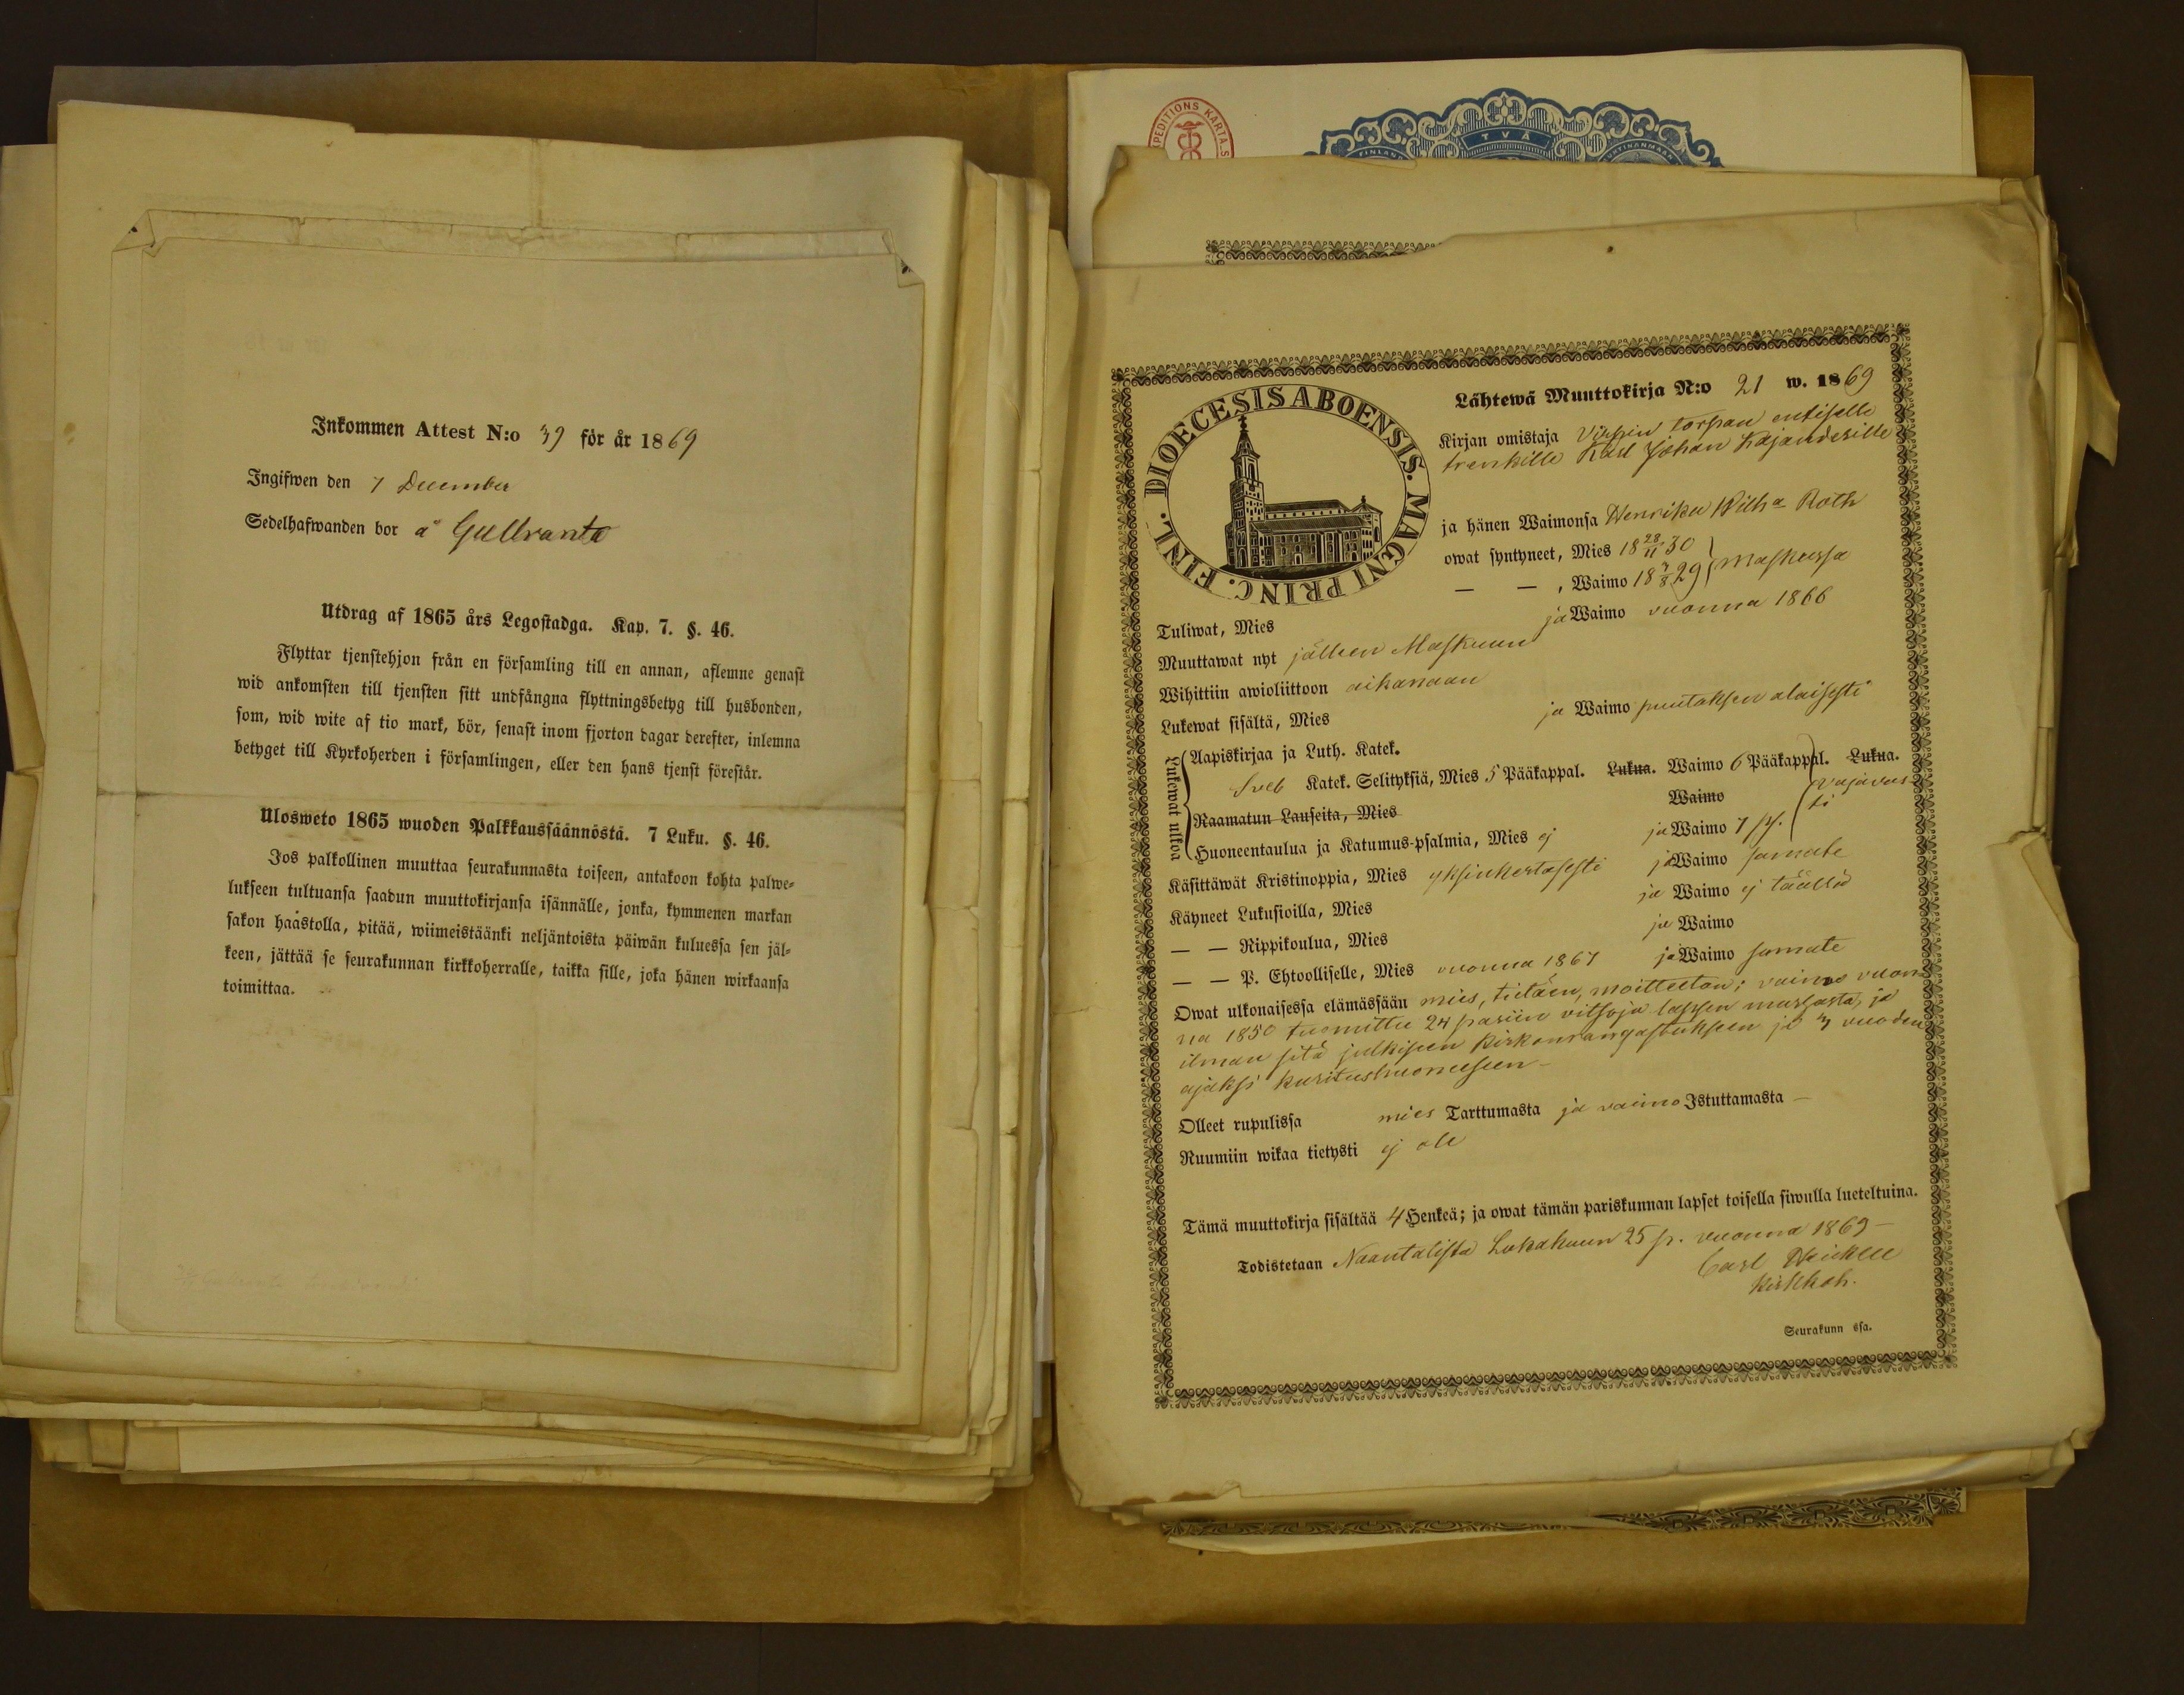 Inkommen Attest N:o 39 för år 1869
Ingifwen den 7 December
Sedelhafwanden bor å Gullranta
Utdrag af 1865 års Legostadga. Kap. 7. §. 46.
Flyttar tjenstehjon från en församling till en annan, aflemne genast
wid ankomsten till tjensten sitt undfångna flyttningsbetyg till husbonden,
som, wid wite af tio mark, bör, senast inom fjorton dagar derefter, inlemna
betyget till Kyrkoherden i församlingen, eller den hans tjenst förestår.
Ulosweto 1865 wuoden Palkkaussäännöstä. 7 Luku. §. 46.
Jos palkollinen muuttaa seurakunnasta toiseen, antakoon kohta palwe-
lukseen tultuansa saadun muuttokirjansa isännälle, jonka, kymmenen markan
sakon haastolla, pitää, wiimeistäänki neljäntoista päiwän kuluessa sen jäl-
keen, jättää se seurakunnan kirkkoherralle, taikka sille, joka hänen wirkaansa
toimittaa.
PEDITIONS KARTA. S
TVÅ
FINLAN
UKTINANMAAN
DIOECESIS ABOENSIS. MAGNI PRINC. FINL.
Lähtewä Muuttokirja N:o 21 w. 1869
Kirjan omistaja torpan entiselle
trenkille Karl Johan Kajanderille
ja hänen Waimonsa Henrika Wilh:a Roth
owat syntyneet, Mies 18 28/11 30
— — , Waimo 18 7/8 29 } Maskussa
Tuliwat, Mies ja Waimo vuonna 1866
Muuttawat nyt jälleen Maskuun
Wihittiin awioliittoon aikanaan
Lukewat sisältä, Mies ja Waimo puutoksen alaisesti
Lukewat ulkoa
Aapiskirjaa ja Luth. Katek.
Sveb Katek. Selityksiä, Mies 5 Pääkappal. Lukua. Waimo 6 Pääkappal. Lukua.
Raamatun Lauseita, Mies Waimo vajavas-
ti
Huoneentaulua ja Katumus-psalmia, Mies ej ja Waimo 7 ps.
Käsittäwät Kristinoppia, Mies yksinkertasesti ja Waimo samate
Käyneet Lukusioilla, Mies ja Waimo ej täällä
— — Rippikoulua, Mies ja Waimo
— — P. Ehtoolliselle, Mies vuonna 1867 ja Waimo samate
Owat ulkonaisessa elämässään mies, tietäen, moitteeton; vaimo vuon-
na 1850 tuomittu 24 pariin vitsoja lapsen murhasta, ja
ilman sitä julkiseen kirkonrangastukseen ja 3 vuoden
ajaksi kuritushuoneeseen —
Olleet rupulissa mies Tarttumasta ja vaimo Istuttamasta —
Ruumiin wikaa tietysti ej ole
Tämä muuttokirja sisältää 4 Henkeä; ja owat tämän pariskunnan lapset toisella siwulla lueteltuina.
Todistetaan Naantalista Lokakuun 25 p. vuonna 1869 —
Carl
Kirkkoh.
Seurakunn ssa.